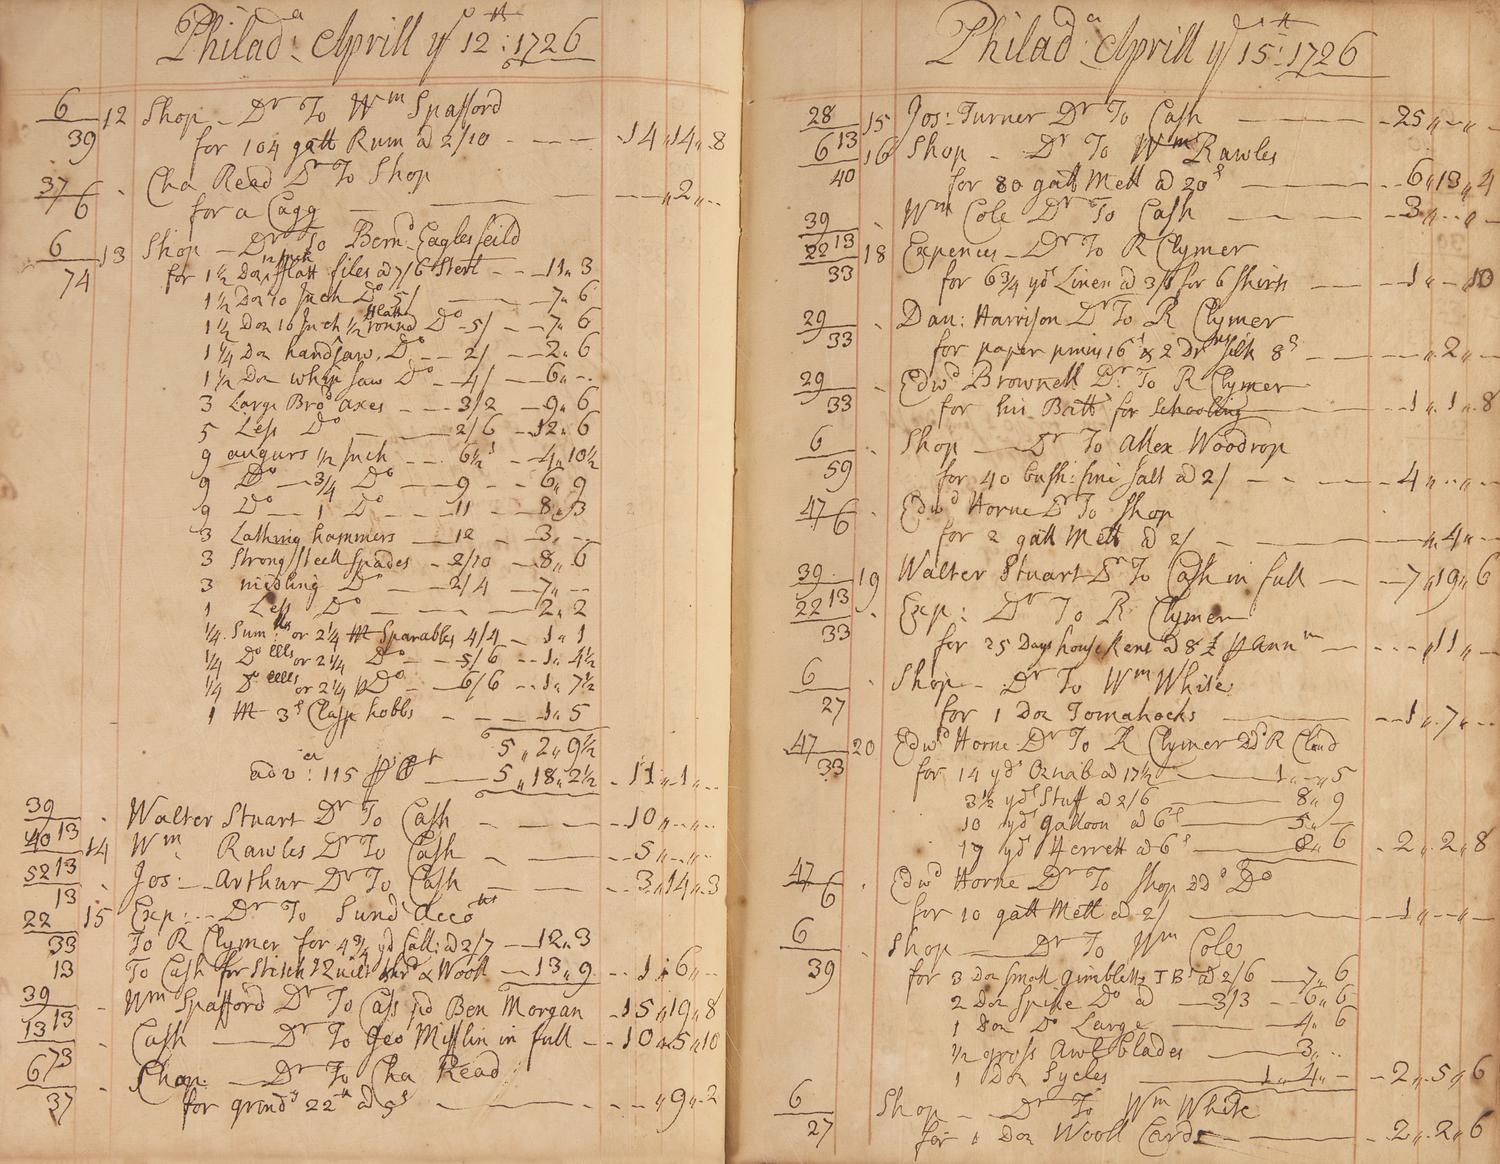 Philad.a Aprill ye 12th: 1726
6 12 Shop - Dr To Wm Spafford
39 for 104 gall Rum a 2/10 - 14 „ 14 „ 8
37 Cha Read Dr To Shop
6 for a Cagg - „ 2 „
6 13 Shop - Dr To Bern.d Eaglesfeild
74 for 1½ Doz flatt files a 7/6 - 11 „ 3
1½ Doz 10 Inch Do 5/ - 7 „ 6
1½ Doz 10 Inch ½ round Do 5/ - 7 „ 6
1¼ Doz handsaw Do - 2/ - 2 „ 6
1½ Doz whip saw Do - 4/ - 6 „
3 Large Brod axes - 3/2 - 9 „ 6
5 Less Do - 2/6 - 12 „ 6
9 augurs ½ Inch - 6½ - 4 „ 10½
9 Do - 3/4 Do - 9 - 6 „ 9
9 Do - 1 Do - 11 - 8 „ 3
3 Lathing hammers - 12 - 3 „
3 Strong steell Spades - 2/10 - 8 „ 6
3 midling Do - 2/4 - 7 „
1 Less Do - 2 „ 2
¼ Sum or 2¼ M Sparables 4/4 - 1 „ 1
¼ Do or 2¼ Do - 5/6 - 1 „ 4½
¼ Do or 2¼ Do - 6/6 - 1 „ 7½
1 M 3d Clasp hobbs - 1 „ 5
5 „ 2 „ 9½
adv.ca: 115 - 5 „ 18 „ 2½ - 11 „ 1 „
39 Walter Stuart Dr To Cash - 10 „
40 13 14 Wm Rawles Dr To Cash - 5 „
52 13 Jos: Arthur Dr To Cash - 3 „ 14 „ 3
13
22 15 Exp: - Dr To Sund Acco.ts
33 To R Clymer for 4¾ yd Call: a 2/7 - 12 „ 3
13 To Cash for & Wooll - 13 „ 9 - 1 „ 6 „
39 Wm Spafford Dr To Cash pd Ben Morgan - 15 „ 19 „ 8
13 13 Cash - Dr To Geo Mifflin in full - 10 „ 5 „ 10
6 73 Shop - Dr To Cha Read
37 for grind.s 22 a 5s - „ 9 „ 2
Philad.a Aprill ye 15th: 1726
28 15 Jos: Turner Dr To Cash - 25 „
6 13 16 Shop - Dr To Wm Rawles
40 for 80 gall Mell a 20d - 6 „ 13 „ 4
39 Wm Cole Dr To Cash - 3 „
22 13 18 Expences - Dr To R Clymer
33 for 6¾ yd Linen a 3/ for 6 Shirts - 1 „ - 10
29 Dan: Harrison Dr To R Clymer
33 for paper pins 16d & 2 Drms silk 8d - „ 2 „
29 Edwd Brownell Dr To R Clymer
33 for his Batt for Schooling - 1 „ 1 „ 8
6 Shop - Dr To Allex Woodrop
59 for 40 bush: fine salt a 2/ - 4 „
47 Edwd Horne Dr To Shop
6 for 2 gall Mell a 2/ - „ 4 „
39 19 Walter Stuart Dr To Cash in full - 7 „ 19 „ 6
22 13 Exp: Dr To R Clymer
33 for 25 Days house Rent a 8£ p Annm - „ 11 „
6 Shop - Dr To Wm White
27 for 1 Doz Tomahocks - 1 „ 7 „
47 20 Edwd Horne Dr To R Clymer
33 for 14 yds Oznab a 17½ - 1 „ - „ 5
3½ yds Stuff a 2/6 - 8 „ 9
10 yds galloon a 6d - 5 „
17 yds Ferrett a 6d - 8 „ 6 - 2 „ 2 „ 8
47 Edwd Horne Dr To Shop Do
6 for 10 gall Mell a 2/ - 1 „
6 Shop - Dr To Wm Cole
39 for 3 Doz small gimbletts a 2/6 - 7 „ 6
2 Doz Spike Do a - 3/3 - 6 „ 6
1 Doz Do Large - 4 „ 6
½ gross Awl blades - 3 „
1 Doz Sycles - 1 „ 4 „ - 2 „ 5 „ 6
6 Shop - Dr To Wm White
27 for 1 Doz Wooll Cards - 2 „ 2 „ 6